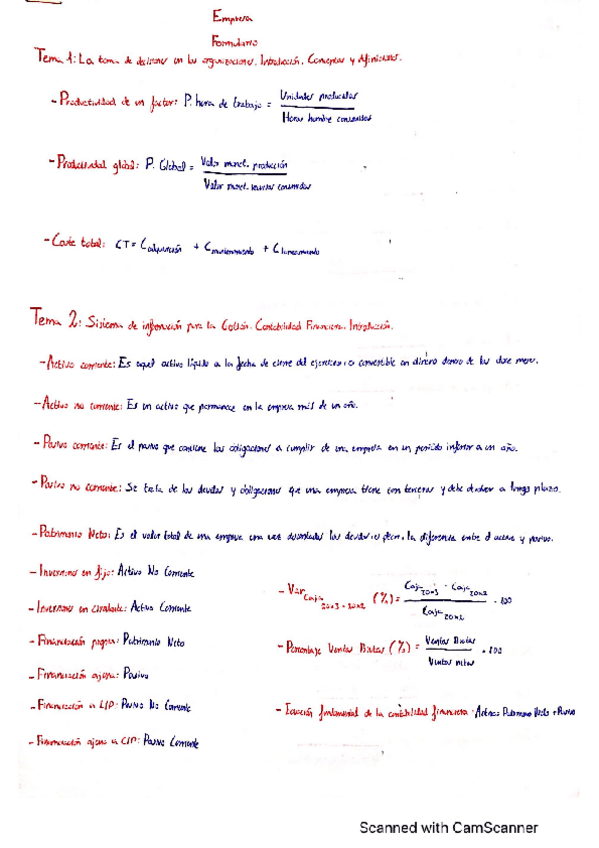 Empresa
Formulario
Tema 1: La toma de decisiones en las organizaciones. Introducción. Conceptos y definiciones.
- Productividad de un factor: P. hora de trabajo = Unidades producidas / Horas hombre consumidas
- Productividad global: P. Global = Valor monet. producción / Valor monet. recursos consumidos
- Coste total: CT = Cadquisición + Cmantenimiento + Clanzamiento
Tema 2: Sistema de información para la Gestión. Contabilidad Financiera. Introducción.
- Activo corriente: Es aquel activo líquido a la fecha de cierre del ejercicio o convertible en dinero dentro de los doce meses.
- Activo no corriente: Es un activo que permanece en la empresa más de un año.
- Pasivo corriente: Es el pasivo que contiene las obligaciones a cumplir de una empresa en un periodo inferior a un año.
- Pasivo no corriente: Se trata de las deudas y obligaciones que una empresa tiene con terceros y debe devolver a largo plazo.
- Patrimonio Neto: Es el valor total de una empresa una vez descontadas las deudas, es decir, la diferencia entre el activo y pasivo.
- Inversiones en fijo: Activo No Corriente
- Inversiones en circulante: Activo Corriente
- Financiación propia: Patrimonio Neto
- Financiación ajena: Pasivo
- Financiación a L/P: Pasivo No Corriente
- Financiación ajena a C/P: Pasivo Corriente
- Var Caja 20x3-20x2 (%) = Caja 20x3 - Caja 20x2 / Caja 20x2 · 100
- Porcentaje Ventas Brutas (%) = Ventas Brutas / Ventas netas · 100
- Ecuación fundamental de la contabilidad financiera: Activo = Patrimonio Neto + Pasivo
Scanned with CamScanner